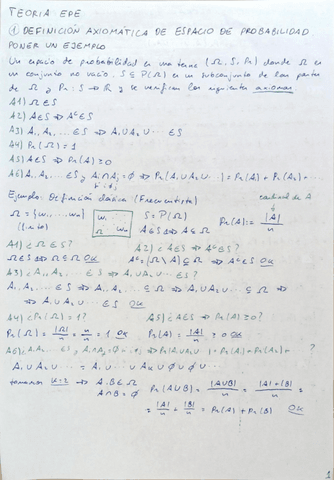 TEORIA EDE
① DEFINICIÓN AXIOMÁTICA DE ESPACIO DE PROBABILIDAD
PONER UN EJEMPLO
Un espacio de probabilidad es una terna (Ω, S, Pr) donde Ω es
un conjunto no vacío. S ⊆ P(Ω) es un subconjunto de las partes
de Ω y Pr: S → R y se verifican los siguientes axiomas
A1) Ω∈S
A2) A∈S ⇒ Aᶜ∈S
A3) A₁, A₂, ... ∈S ⇒ A₁∪A₂∪ ... ∈S
A4) Pr(Ω) = 1
A5) A∈S ⇒ Pr(A) ≥ 0
A6) A₁, A₂, ... ∈S y Ai∩Aj = ∅ ⇒ Pr(A₁∪A₂∪ ... ) = Pr(A₁) + Pr(A₂) + ...
Ejemplo: Definición clásica (Frecuentista) cardinal de A
Ω = {w₁, ..., wn} S = P(Ω) Pr(A) := |A|/n
(finito) w₁ ... Ω wn A∈S ⇔ A⊆Ω
A1) ¿Ω∈S? A2) ¿A∈S ⇒ Aᶜ∈S?
Ω∈S ⇔ Ω⊆Ω OK Aᶜ = (Ω\A) ⊆Ω ⇒ Aᶜ∈S OK
A3) ¿A₁, A₂, ... ∈S ⇒ A₁∪A₂∪ ... ∈S?
A₁, A₂, ... ∈S ⇔ A₁, A₂ ... ⊆ Ω ⇒ A₁∪A₂∪ ... ⊆ Ω ⇔
⇔ A₁∪A₂∪ ... ∈S OK
A4) ¿Pr(Ω) = 1? A5) ¿A∈S ⇒ Pr(A) ≥ 0?
Pr(Ω) = |Ω|/n = n/n = 1 OK Pr(A) = |A|/n ≥ 0 OK
A6) ¿A₁, A₂, ... ∈S, Ai∩Aj = ∅ ⇒ Pr(A₁∪A₂∪ ... ) = Pr(A₁) + Pr(A₂) + ... ?
A₁∪A₂∪ ... = A₁∪ ... ∪Ak∪∅∪∅∪ ...
tomamos k=2 ⇒ A, B⊆Ω Pr(A∪B) = |A∪B|/n = |A|+|B|/n =
A∩B = ∅
= |A|/n + |B|/n = Pr(A) + Pr(B) OK
1